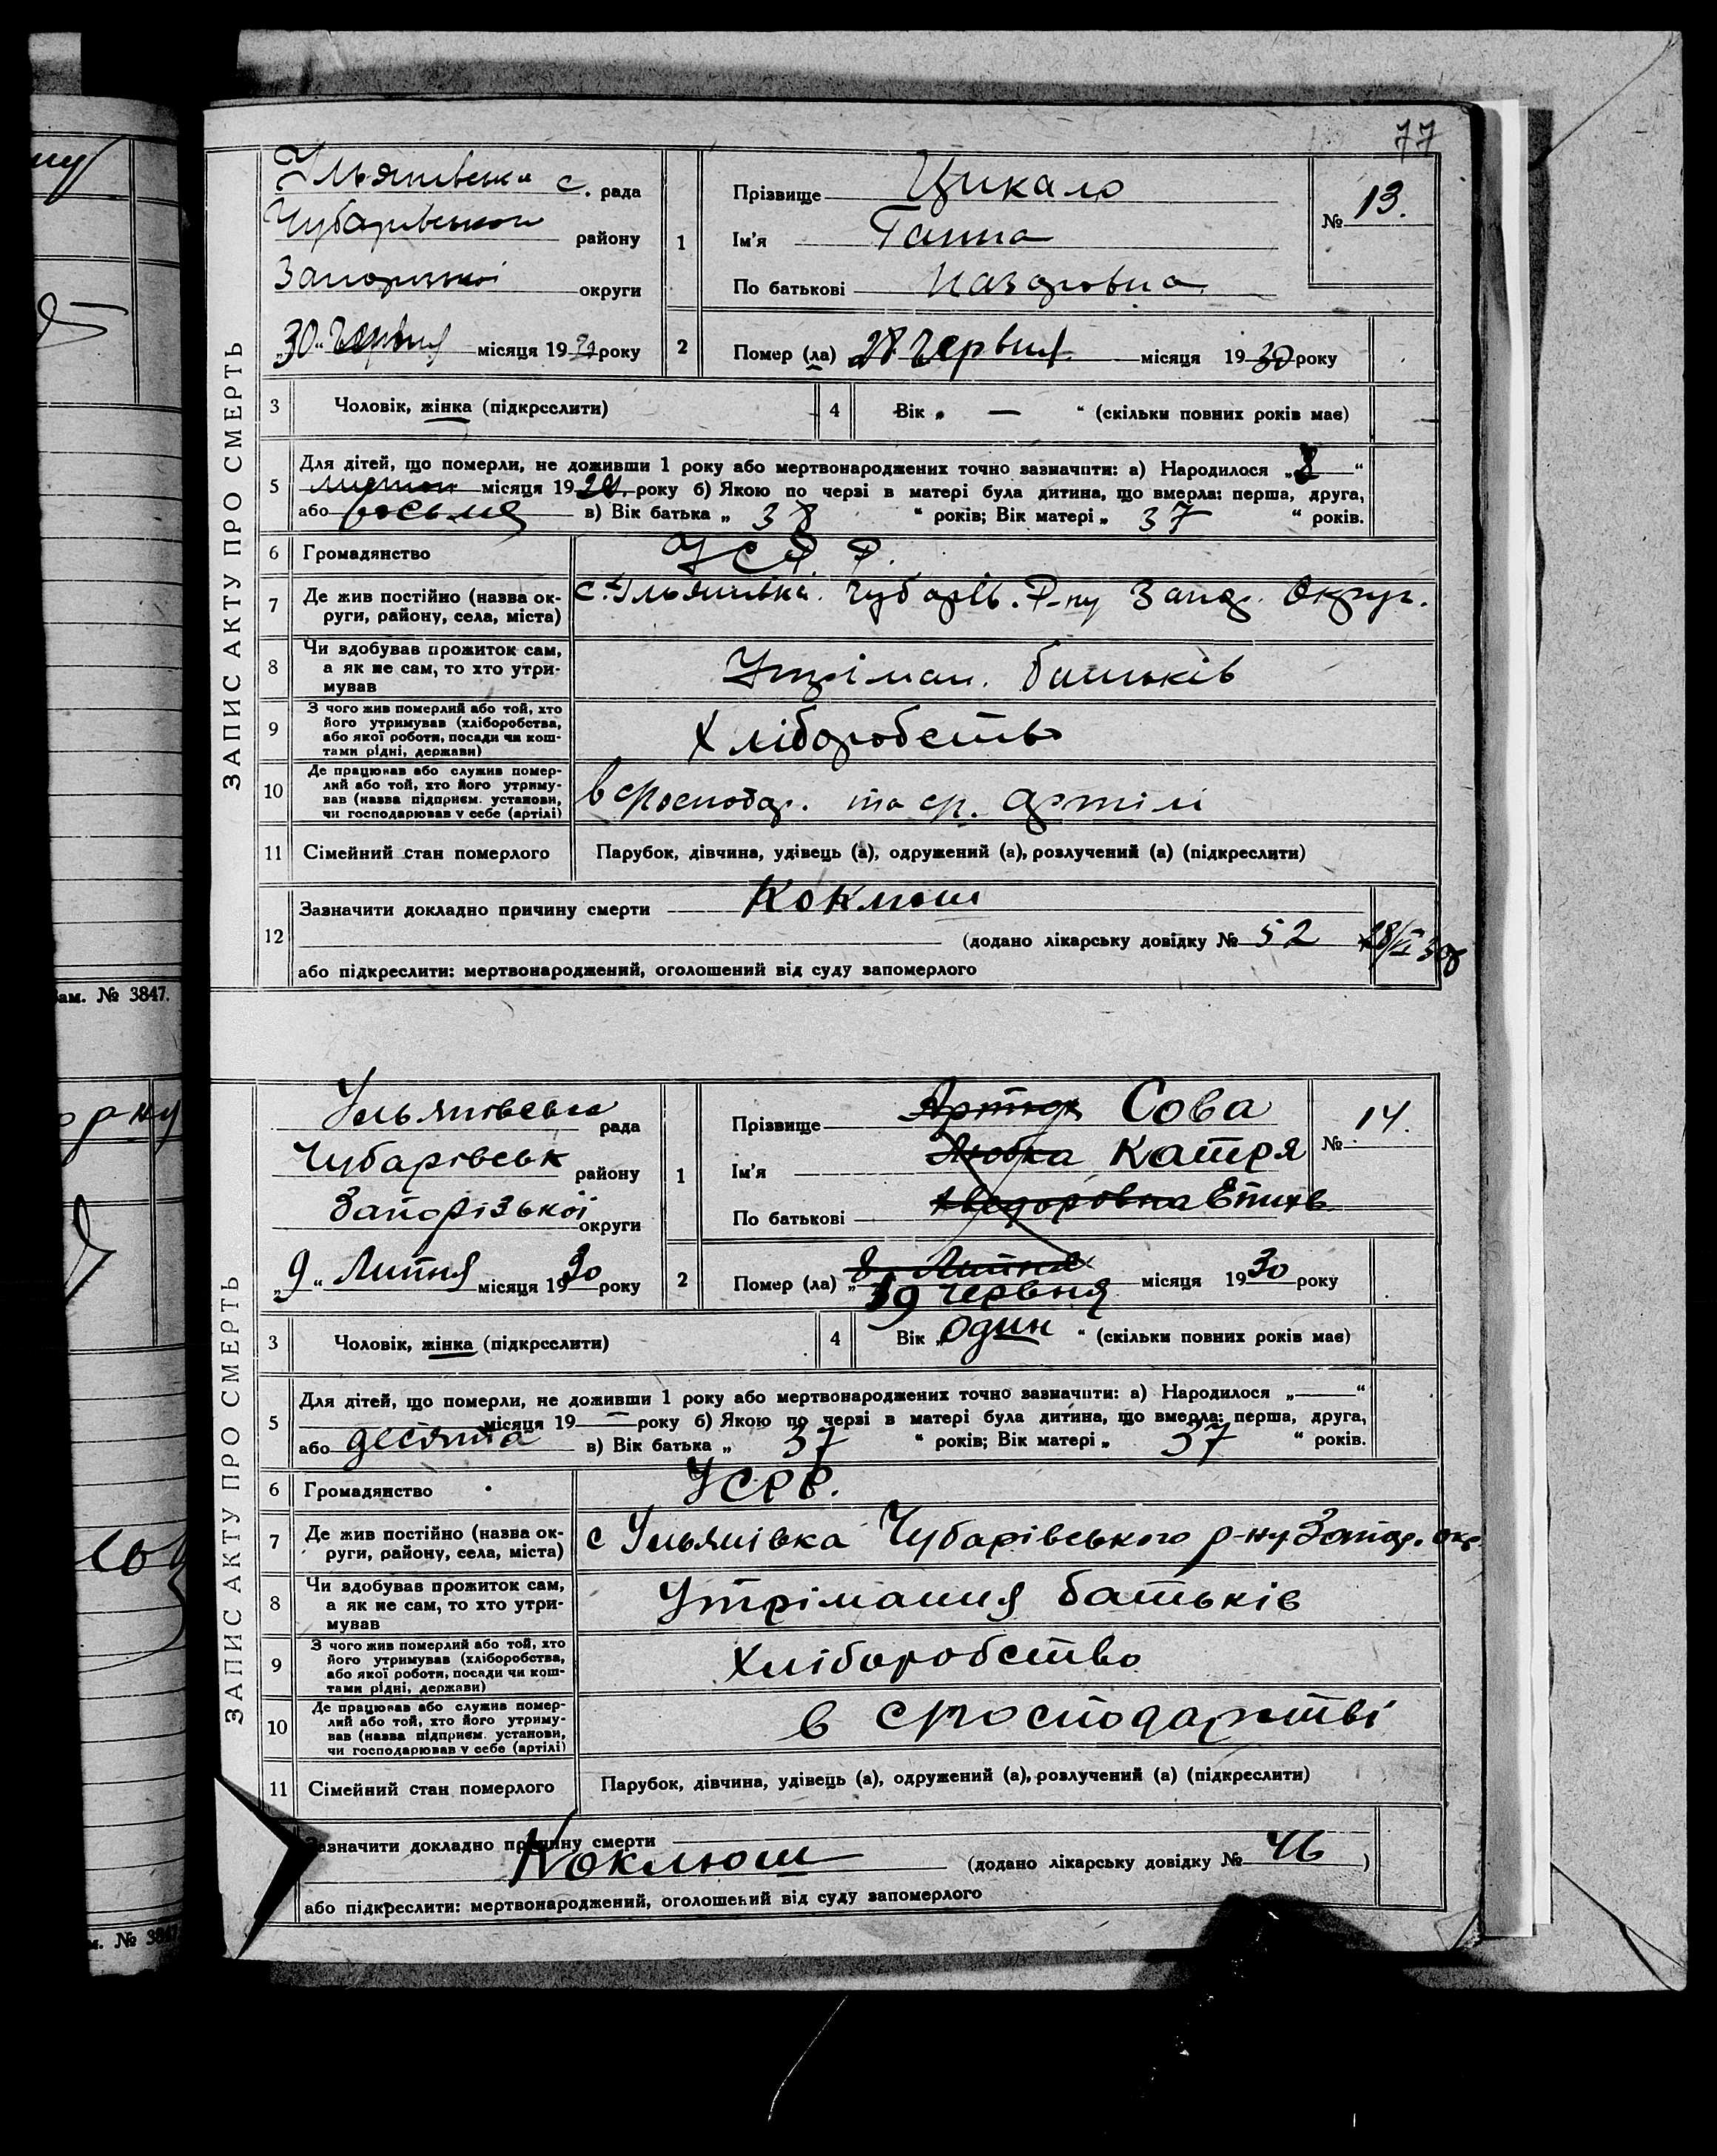 77
ЗАПИС АКТУ ПРО СМЕРТЬ
Ульянівська с. рада
Чубарівського району
Запорізької округи
„30“ Червня місяця 1930 року
1
Прізвище Цикало
Ім'я Ганна
По батькові Назаровна
№ 13.
2 Помер (ла) 28 Червня місяця 1930 року
3 Чоловік, жінка (підкреслити)
4 Вік „ — “ (скільки повних років має)
5 Для дітей, що померли, не доживши 1 року або мертвонароджених точно зазначити: а) Народилося „8“
місяця 1929. року б) Якою по черві в матері була дитина, що вмерла: перша, друга,
або восьма в) Вік батька „ 38 “ років; Вік матері „ 37 “ років.
6 Громадянство УСРР.
7 Де жив постійно (назва ок-
руги, району, села, міста)
с. Ульянівка. Чубарів. Р-ну Запор. Округ.
8 Чи здобував прожиток сам,
а як не сам, то хто утри-
мував
Утріман. батьків
9 З чого жив померлий або той, хто
його утримував (хліборобства,
або якої роботи, посади чи кош-
тами рідні, держави)
Хліборобство
10 Де працював або служив помер-
лий або той, хто його утриму-
вав (назва підприєм. установи,
чи господарював у себе (артілі)
в артілі
11 Сімейний стан померлого Парубок, дівчина, удівець (а), одружений (а), розлучений (а) (підкреслити)
12 Зазначити докладно причину смерти Коклюш
(додано лікарську довідку № 52 28/VI 30р
або підкреслити: мертвонароджений, оголошений від суду запомерлого
Зам. № 3847.
ЗАПИС АКТУ ПРО СМЕРТЬ
Ульянівська рада
Чубарівськ району
Запорізької округи
„9“ Липня місяця 1930 року
1
Прізвище Сова
Ім'я Любка Катря
По батькові Хведоровна Епихв
№ 14.
2 Помер (ла) „8 Липня
19 червня місяця 1930 року
3 Чоловік, жінка (підкреслити)
4 Вік „один“ (скільки повних років має)
5 Для дітей, що померли, не доживши 1 року або мертвонароджених точно зазначити: а) Народилося „—“
місяця 19 — року б) Якою по черві в матері була дитина, що вмерла: перша, друга,
або десята в) Вік батька „ 37 “ років; Вік матері „ 37 “ років.
6 Громадянство УСРР.
7 Де жив постійно (назва ок-
руги, району, села, міста)
с Ульянівка Чубарівського р-ну Запор. окр
8 Чи здобував прожиток сам,
а як не сам, то хто утри-
мував
Утрімання батьків
9 З чого жив померлий або той, хто
його утримував (хліборобства,
або якої роботи, посади чи кош-
тами рідні, держави)
Хліборобство
10 Де працював або служив помер-
лий або той, хто його утриму-
вав (назва підприєм. установи,
чи господарював у себе (артілі)
в господарстві
11 Сімейний стан померлого Парубок, дівчина, удівець (а), одружений (а), розлучений (а) (підкреслити)
Зазначити докладно причину смерти
Коклюш (додано лікарську довідку № 46 )
або підкреслити: мертвонароджений, оголошений від суду запомерлого